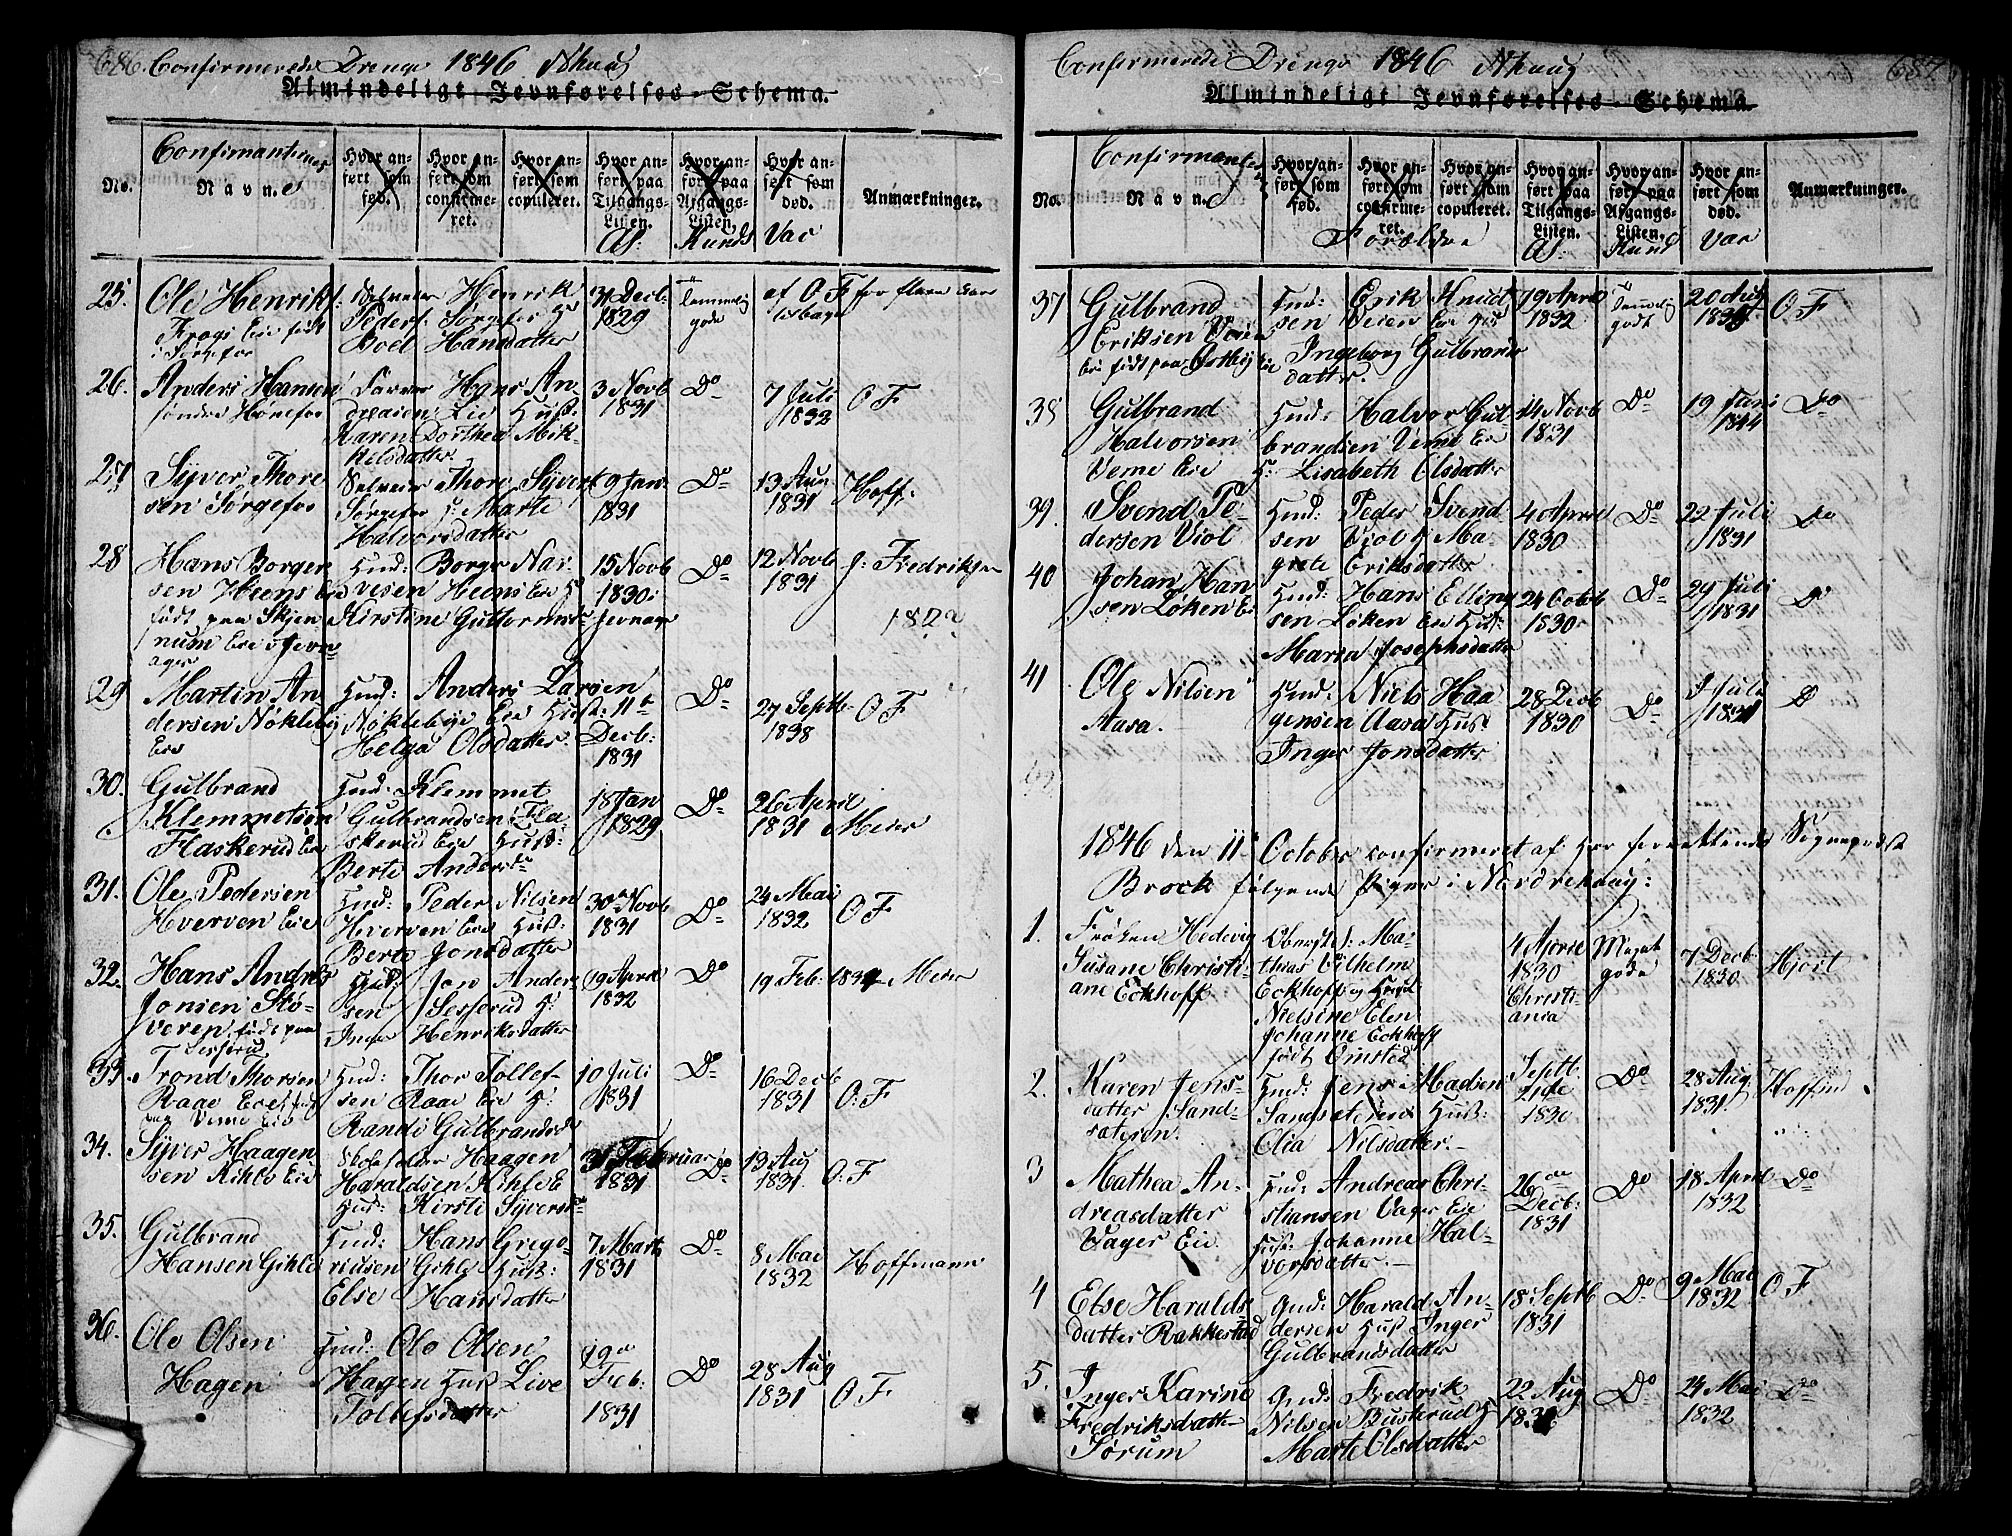 686. Confirmerede Drenge 1846 Nhaug
Almindeligt Jevnførelses-Schema.
Confirmanternes
No.
Navn.
Hvor anført som fød.
Hvor anført som confirmeret.
Hvor anført som copuleret.
Hvor anført paa Tilgangs-Listen.
Hvor anført paa Afgangs-Listen.
Hvor anført som død.
Anmærkninger.
Al: Kunds Vac
25. Ole Henriks:
Frogs Eie født
i Sørgefos
Selveier Henrik
Peders: Sørgefos
Boel Hansdatter
31 Decb:
1829
Temmelig
gode
af O F for fleere Aar
tilbage
26. Anders Hansen
søndre Hønefos
Hans An-
dreasen Eie Hust:
Karen Dorthea Mik-
kelsdatter
3 Novb
1831
Do
7 Juli
1832
O F
27 Syver Thore
sen Sørgefos
Selveier Thore Syvert
Sørgefos H: Marte
Halvorsdatter
9 Jan:
1831
Do
13 Aug
1831
Hoff:
28 Hans Borger
sen Heens Eie
født paa Skjen
num Eie i Jevn
ager
Huusd: Borger Nar-
vesen Heens Eie H:
Kirstine Guttorms
15 Novb
1830
Jevnager
Do
12 Novb
1831
J: Fredriksen
29 Martin An
dersen Nökleby
Eie
Huusd: Anders Larsen
Nöklebye Eie Hust:
Helga Olsdatter
11te
Decb:
1831
Do
27 Septb
1838
O F
30. Gulbrand
Klemmetsen
Flaskerud Eie
Huusd: Klemmet
Gulbrandsen Fla-
skerud Eie Hust:
Berte Andersdr
18 Jan
1829
Do
26 April
1831
Meier
31. Ole Pedersen
Hverven Eie
Huusd: Peder Nilsen
Hverven Eie Hust:
Berte Jonsdatter
30 Novb
1831
Do
24 Mai
1832
O F
32. Hans Andreas
Jonsen Stö-
veren, føde paa
Sesserud
Huusd: Jon Ander-
sen Sesserud H:
Inger Henriksdatter
19 April
1832
Do
19 Feb: 1832
Meier
33. Trond Thorsen
Raae Eie
Veme Eie
Huusd: Thor Tollef-
sen Raae Eie H:
Randi Gulbrandsd
10 Juli
1831
Do
16 Decb
1831
O: F
34. Syver Haagen
sen Kihle Eie
Haagen
Haraldsen Kihle E
Hus: Kirsti Syversdr
Februar
1831
Do
13 Aug
1831
O: F
35. Gulbrand
Hansen Gihle
Huusd: Hans Grego-
riusen Gihle Hust:
Else Hansdatter
7 Marts
1831
Do
8 Mai
1832
Hoffmann
36. Ole Olsen
Hagen
Huusd: Ole Olsen
Hagen Hust Live
Tollefsdatter
19de
Feb:
1831
Do
28 Aug
1831
O F
Confirmerede Drenge 1846 Nhaug 687
Almindeligt Jevnførelses-Schema.
Confirmanter
No.
Navn.
Hvor anført som fød.
Hvor anført som confirmeret.
Hvor anført som copuleret.
Hvor anført paa Tilgangs-Listen.
Hvor anført paa Afgangs-Listen.
Hvor anført som død.
Anmærkninger.
Forældre Al: Kund Vac
37 Gulbrand
Eriksen Veien
Eie født paa Østby Eie
Huusd: Erik Knud
sen Veien Eie Hus
Ingeborg Gulbrands
datter.
19 April
1832
Temmelig
godt
20 Aug
O F
38 Gulbrand
Halvorsen
Veme Eie
Huusd: Halvor Gul-
brandsen Veme Eie
H: Lisabeth Olsdatter
14 Novb
1831
Do
19 Juni
1844
Do
39. Svend Pe-
dersen Viol
Huusd: Peder Svend
sen Viol H Ma-
grete Eriksdatter
4 April
1830
Do
22 Juli
1831
Do
40 Johan Han
sen Løken Eie
Huusd: Hans Elling
sen Løken Eie Hust:
Maria Josephsdatter
24 Octob
1830
Do
29 Juli
1831
Do
41 Ole Nilsen
Aasa.
Huusd: Niels Haa
gensen Aasa Hus:
Inger Jonsdatter
28 Decb
1830
Do
Juli
1831
Do
1846 den 11te October confirmeret af Her forrettende Sogneprest
Brock følgende Piger i Nordrehaug:
1. Frøken Hedevig
Susane Christi-
ane Eckhoff
Oberstl: Ma-
thias Vilhelm
Eckhoff og Frue
Nielsine Elen
Johanne Eckhoff
født Omsted
4 April
1830
Christi-
ania
Meget
gode
7 Decb
1830
Hjort
2. Karen Jens-
datter Sand-
sateren.
Huusd: Jens Madsen
Sandsateren Hust:
Olia Nilsdatter.
Septb
21de
1830
Do
28 Aug
1831.
Hoffmd
3 Mathea An-
dreasdatter
Vager Eie.
Huusd: Andreas Chri-
stiansen Vager Eie
Hust: Johanne Hal-
vorsdatter.
26de
Decb:
1831
Do
18 April
1832
Do
4 Else Haralds
datter Rakkestad
Huusd: Harald An-
dersen Hust Inger
Gulbrandsdatter
18 Septb
1831
Do
9 Mai
1832
O F
5. Inger Karine
Fredriksdatter
Sørum
Huusd: Fredrik
Nilsen Busterud H
Marte Olsdatter
22 Aug
Do
24 Mai
1832
Do